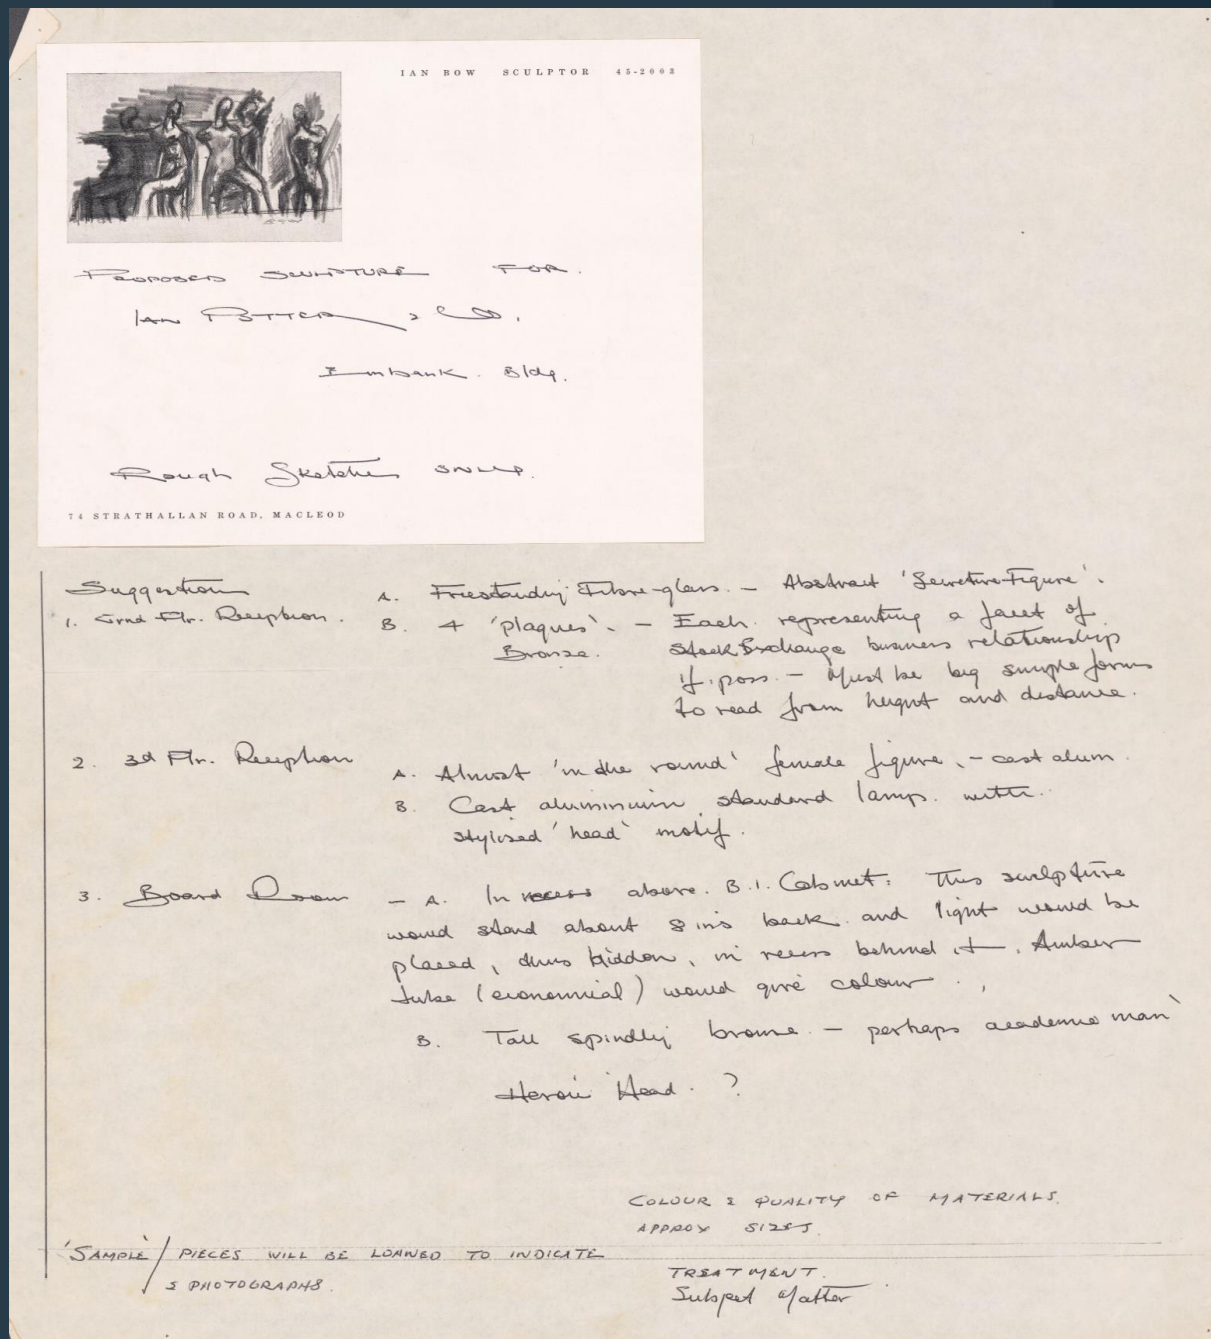 IAN BOW SCULPTOR 45-2003
PROPOSED SCULPTURE FOR.
IAN POTTER & CO.
Embank. Bldg.
Rough Sketches ONLY.
74 STRATHALLAN ROAD, MACLEOD
Suggestions
1. Grnd Flr. Reception.
A. Freestanding Fibre-glass. — Abstract 'Secretive Figure'.
B. 4 'plaques'. — Each representing a facet of
Bronze. Stock Exchange business relationship
if. poss. — Must be big simple forms
to read from height and distance.
2. 3d Flr. Reception
A. Almost 'in the round' female figure. — cast alum.
B. Cast aluminium standard lamp. with.
stylised 'head' motif.
3. Board Room — A. In recess above. B.I. Cabinet. This sculpture
would stand about 8 ins back and light would be
placed, thus hidden, in recess behind it. Amber
tube (economical) would give colour.
B. Tall spindly bronze. — perhaps academic man
Heroic Head. ?
COLOUR & QUALITY OF MATERIALS.
APPROX SIZES.
'SAMPLE' / PIECES WILL BE LOANED TO INDICATE
& PHOTOGRAPHS.
TREATMENT.
Subject Matter